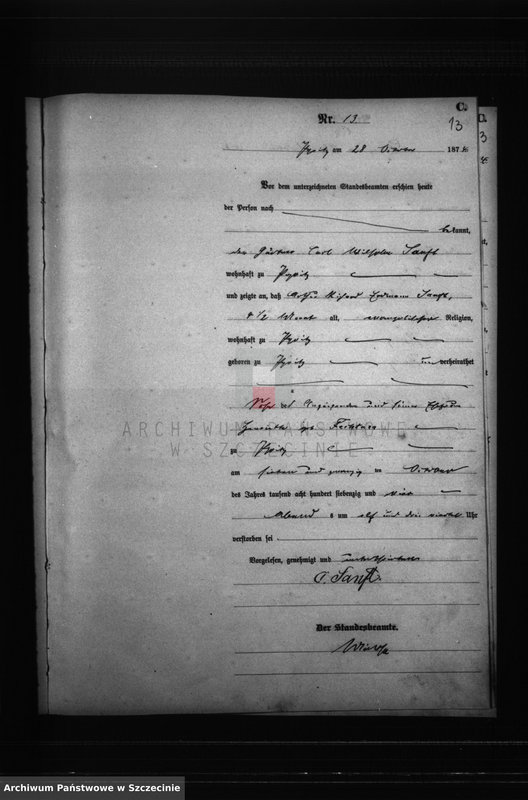 C.
Nr. 13
13
Pyritz am 28 October 1874
Vor dem unterzeichneten Standesbeamten erschien heute
der Person nach
bekannt,
der Gärtner Carl Wilhelm Sanft
wohnhaft zu Pyritz
und zeigte an, daß Richard Erdmann Sanft,
4 1/2 Monat alt, evangelischer Religion,
wohnhaft zu Pyritz
geboren zu Pyritz unverheirathet
Sohn des Anzeigenden und seiner Ehefrau
Henriette geb.
zu Pyritz
am sieben und zwanzig ten October
des Jahres tausend acht hundert siebenzig und vier
Abends um elf und drei viertel Uhr
verstorben sei
Vorgelesen, genehmigt und unterschrieben
C. Sanft.
Der Standesbeamte.
ARCHIWUM PAŃSTWOWE
W SZCZECINIE
Archiwum Państwowe w Szczecinie